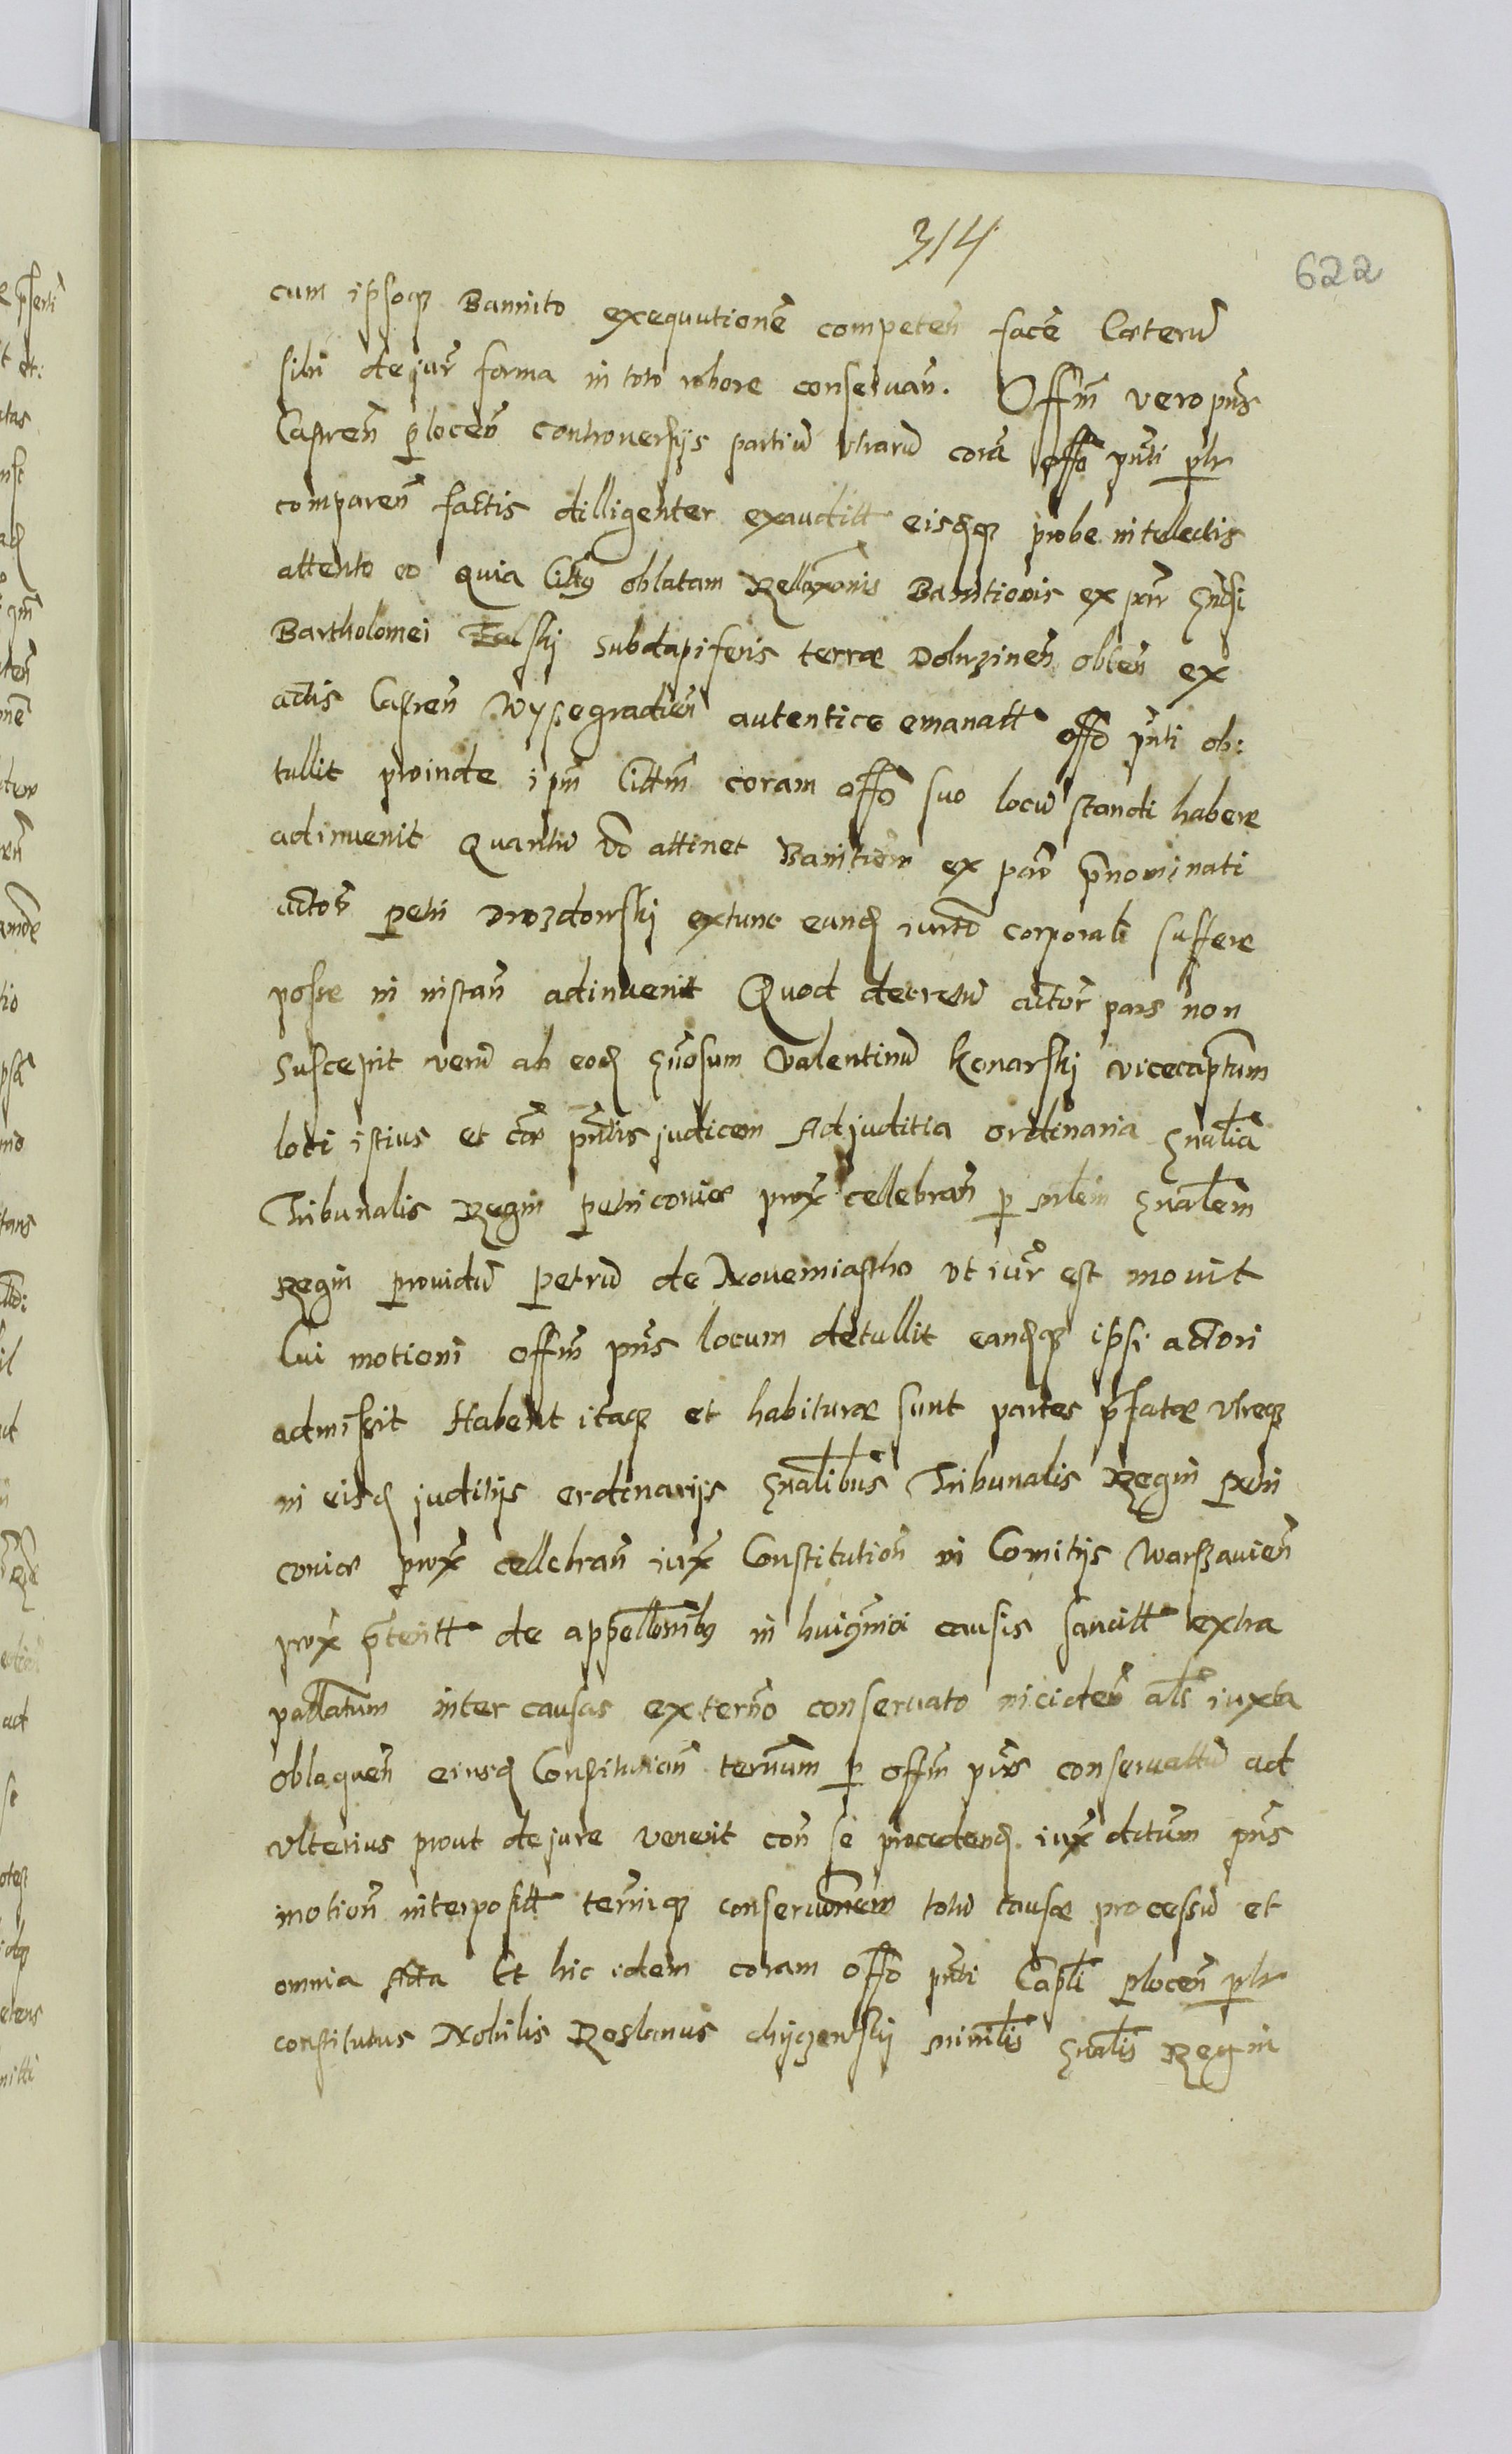 314
622
cum ipsoq3 Bannito exequutionē competeñ facē Cæterū
sibi de jur̃ forma in toto robore conseruañ. Offm̃ vero pñs
Castreñ plocen̄ controuersijs partiū vtrarū corā offo pñti plr
compareñ factis dilligenter exauditt eisdq3 probe intellectis
attento eo quia Citt9 oblatam Rellaxonis Banitionis ex par̃ Gñsi
Bartholomei subdapiferis terræ Dobrzineñ obteñ ex
actis Castreñ Wyssegradieñ autentice emanatt offo pñti ob:
tullit proinde ipm̃ Cittm̃ coram offo suo locū standi habere
adinvenit Quantū v̄o attinet Banitiōm ex par̃ p̃nominati
actor̃ petri Drozdowskj extunc eand iurtō corporali suffere
posse in instañ adinuenit Quod decretū actor̃ pars non
suscepit verū ab eod Gñosum Valentinū Konarskj vicecaptum
loci istius et cāe pñtis judicem Ad juditia ordinaria Gñalia
Tribunalis Regni petriconiæ prox̃ cellebrañ p nrlem Gñalem
Regni prouidū petrū de Nouemiastho vt iur̃ est mouit
Cui motioni offm̃ pñs locum detullit eandq3 ipsi actori
admissit Habent itaq3 et habituræ sunt partes p̃fatæ vtreq3
in eisd juditijs ordinarijs Gñalibus Tribunalis Regni petri
coniæ prox̃ cellebrañ iux̃ Constitution̄ in Comitijs Warssauieñ
prox̃ p̃teritt de appellonib9 in huiq̃modi causis sancitt extra
pallatum inter causas ex termo conseruato incideñ als iuxta
obloqueñ eiusd Constitutioñ termm̃ p offm̃ pñs conseruattū ad
vlterius prout de jure venerit coñ se procedend iux̃ dctum pñs
motioñ interposãtt termiq3 conseruonem totū causæ processū et
omnia Acta Et hic idem coram offo pñti Capli plocen̄ plr
constitutus Nobilis Roslanus chyczewskj minrlis Gñalis Regni